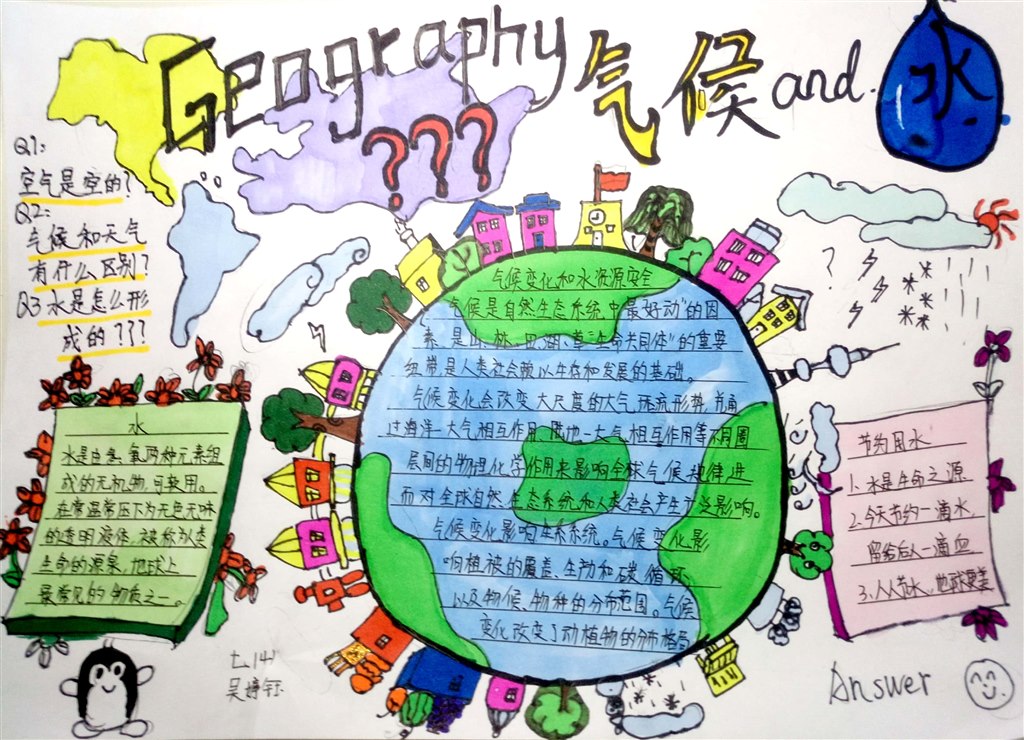 Geography 气候 and 水
???
Q1:
空气是空的?
Q2:
气候和天气
有什么区别?
Q3 水是怎么形
成的???
水
水是由氢、氧两种元素组
成的无机物,可饮用。
在常温常压下为无色无味
的透明液体,被称为人类
生命的源泉,地球上
最常见的物质之一。
气候变化和水资源安全
气候是自然生态系统中最"好动"的因
素,是山、林、田、湖、草"生命共同体"的重要
纽带,是人类社会赖以生存和发展的基础。
气候变化会改变大尺度的大气环流形势,并通
过海洋-大气相互作用、陆地-大气相互作用等不同圈
层间的物理化学作用来影响全球气候规律,进
而对全球自然生态系统和人类社会产生广泛影响。
气候变化影响生态系统。气候变化影
响植被的覆盖、生产力和碳循环,
以及物候、物种的分布范围。气候
变化改变了动植物的分布格局
?
节约用水
1、水是生命之源
2.今天节约一滴水,
留给后人一滴血
3、人人节水,地球更美
七.14
Answer